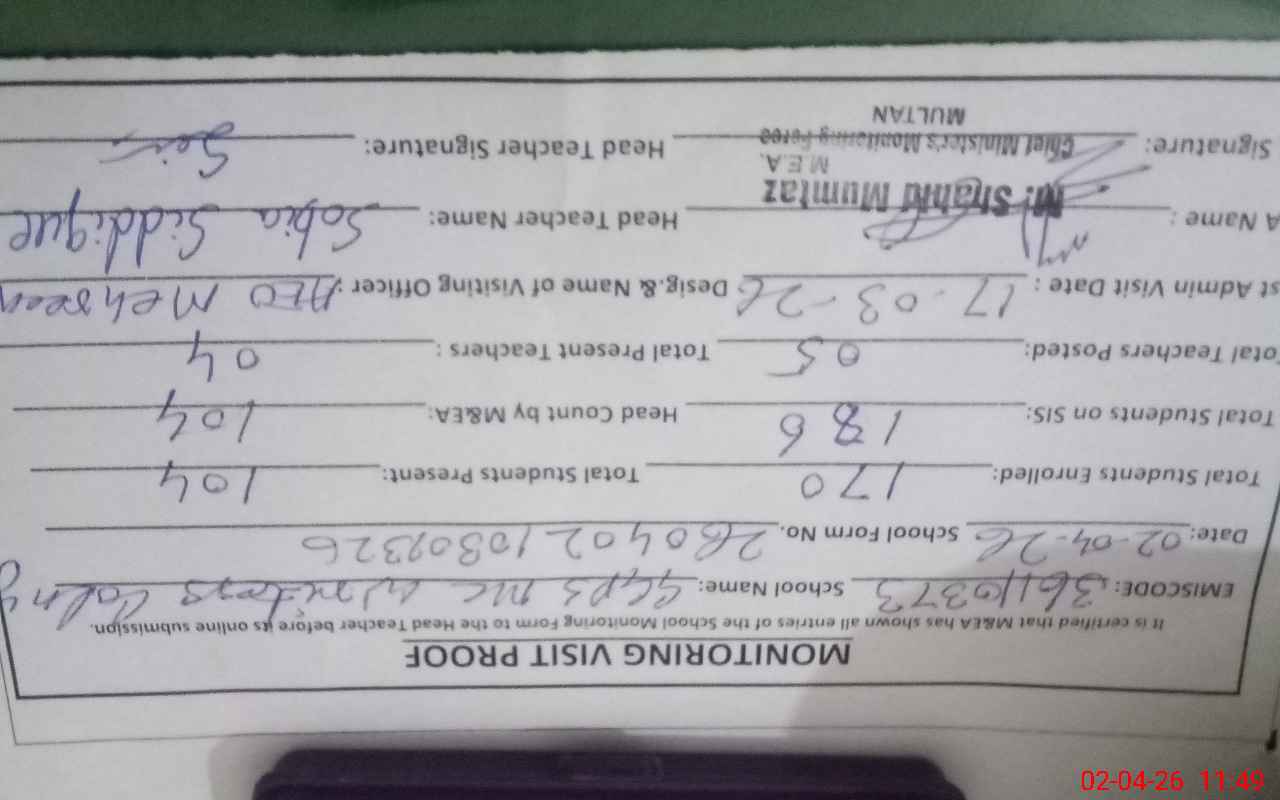 MONITORING VISIT PROOF
It is certified that M&EA has shown all entries of the School Monitoring Form to the Head Teacher before its online submission.
EMISCODE: 36110373 School Name: GGPS MC
Date: 02-04-26 School Form No. 260402108092326
Total Students Enrolled: 170 Total Students Present: 104
Total Students on SIS: 186 Head Count by M&EA: 104
Total Teachers Posted: 05 Total Present Teachers: 04
st Admin Visit Date: 17-03-26 Desig.& Name of Visiting Officer: AEO Mehreen
A Name: Shahid Mumtaz Head Teacher Name: Sobia Siddique
M.E.A.
Signature: Chief Minister's Monitoring Force Head Teacher Signature:
MULTAN
02-04-26 11:49